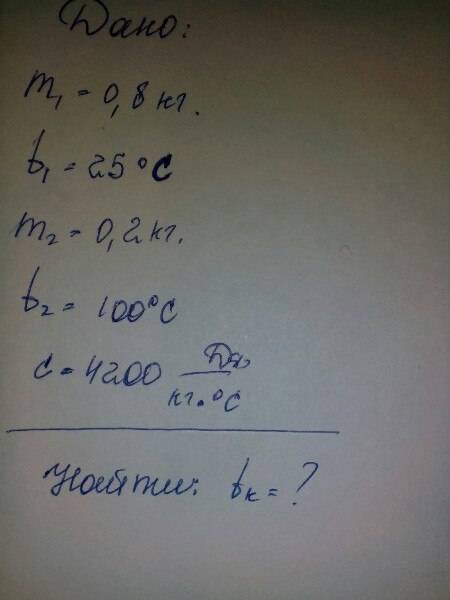 Дано:
m₁ = 0,8 кг.
t₁ = 25°C
m₂ = 0,2 кг.
t₂ = 100°C
c = 4200 Дж
кг·°C
Найти: tк = ?